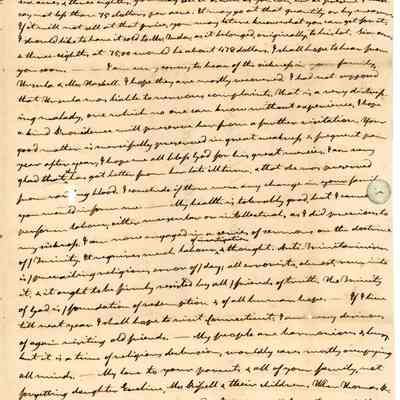 say not less than 75 dollars per acre. If many get at that quantity on by means,
If it will not sell at that price, you may let me know what you can get for it,
I should like to have it sold to Mr. Under, as it belonged, originally, to him but. Six acres
& three eighths, at 75.00 would be about 478 dollars. I shall hope to hear from
you soon. — I am sorry to hear of the sickness in your family,
Ursula & Mrs. Haskell. I hope they are mostly recovered. I had not supposed
that Ursula was liable to nervous complaints. That is a very distress-
ing malady, one which no one can know without experience. I hope
a kind Providence will preserve her from a further visitation. Your
good mother is mercifully preserved in great weakness & frequent pain
year after year, I hope we all bless God for his great mercies. I am very
glad that has got better from her late illness, & that she was preserved
from raising blood. I conclude if there were any change in your family
you would inform me — My health is tolerably good, but I cannot
perform labour, either muscular or intellectual, as I did previous to
my sickness. I am now engaged in a series of sermons on the doctrine
of / Divinity. It requires much labour, & thought. Anti Trinitarianism
investigation
is / prevailing religious error of / day; all errorists, almost, run into
it, & it ought to be firmly resisted by all / friends of truth. The Trinity
of God is / foundation of redemption & of all human hope. — If I live
till next year I shall hope to visit Connecticut. I am very desirous
of again visiting old friends. — My people are harmonious & kind,
but it is a time of religious declension, worldly cares mostly occupying
all minds. — My love to your parents & all of your family, not
forgetting daughter Emeline, Mrs. & their children. When Thomas